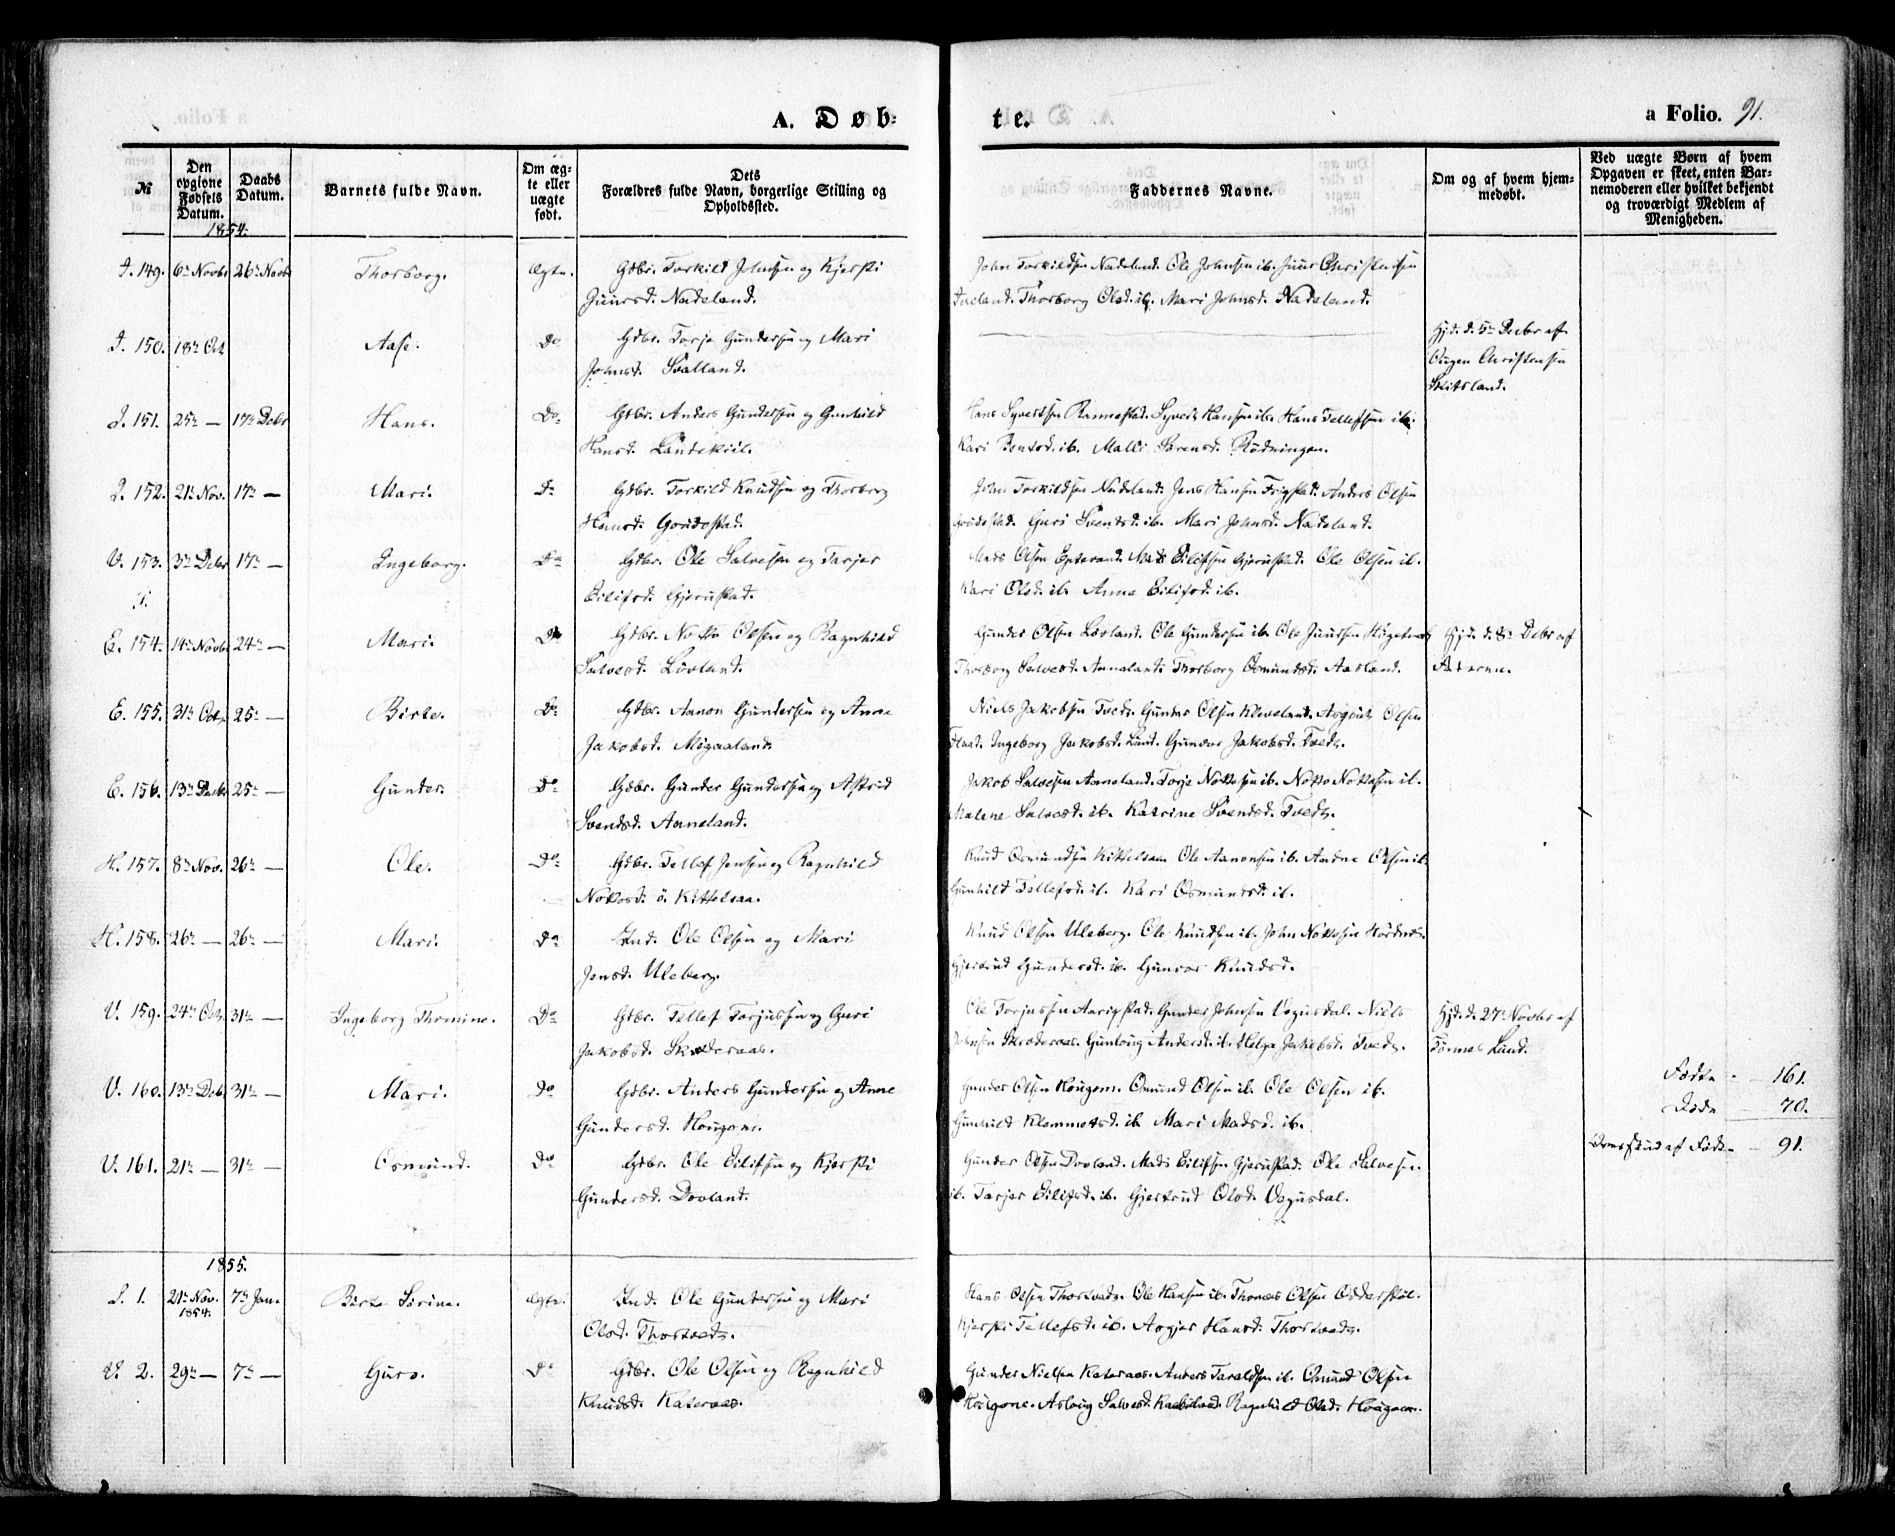 A. Døb-
te.
a Folio. 91.
№
Den opgivne Fødsels Datum.
Daabs Datum.
Barnets fulde Navn.
Om ægte eller uægte født.
Dets Forældres fulde Navn, borgerlige Stilling og Opholdssted.
Faddernes Navne.
Om og af hvem hjemmedøbt.
Ved uægte Børn af hvem Opgaven er skeet, enten Barnemoderen eller hvilket bekjendt og troværdigt Medlem af Menigheden.
1854.
I. 149. 6te Novbr 26te Novbr Thorborg. Ægte. Gdbr. Torkild Johnsen og Kjersti
Juursd. Nadeland.
John Torkildsen Nadeland. Ole Johnsen ib. Juur Christensen
Thorborg Olsd. ib. Mari Johnsd. Nadeland.
I. 150. 18de Oct Aase. Do Gdbr. Torje Gundersen og Mari
Johnsd. Svalland.
Hjd. d. 5te Decbr af
Christensen
Skitsland.
I. 151. 25de — 17de Debr Hans. Do. Gdbr. Anders Gundersen og Gunhild
Hansd. Landekiil.
Hans Syvertsen Rannestad. Syvert Hansen ib. Hans Tellefsen ib.
Kari Bentsd. ib. Malli Sørensd. Rødningen.
I. 152. 21de Nov. 17de — Mari. Do Gdbr. Torkild Knudsen og Thorborg
Hansd. Goudestad.
John Torkildsen Nadeland. Jens Hansen Frigstad. Anders Olsen
Guri Svendsd. ib. Mari Johnsd. Nadeland.
V. 153. 3de Debr 17de — Ingeborg. Do Gdbr. Ole Salvesen og Tarjer
Eilifsd. Gjerustad.
Mads Olsen Mads Eilifsen Gjerustad. Ole Olsen ib.
Kari Olsd. ib. Anne Eilifsd. ib.
E. 154. 14de Novbr 24de — Mari. Do Gdbr. Notto Olsen og Ragnhild
Salvesd. Løvland.
Gunder Olsen Løvland. Ole Gundersen ib. Ole Juursen
Thorborg Salvesd. Aanneland. Thorborg Osmundsd. Aasland.
Hjd. d. 8de Debr af
E. 155. 31te Octr 25de — Birte. Do Gdbr. Aanon Gundersen og Anne
Jakobsd. Møgaaland.
Niels Jakobsen Tvedt. Gunder Olsen Kleveland. Olsen
Ingeborg Jakobsd. Lund. Gunvor Jakobsd. Tvedt.
E. 156. 13de Decbr 25de — Gunder. Do Gdbr. Gunder Gundersen og Astrid
Svendsd. Aaneland.
Jakob Salvesen Aaneland. Torje Nottosen ib. Notto Nottosen ib.
Malene Salvesd. ib. Katrine Svendsd. Tvedt.
H. 157. 8de Nov. 26de — Ole. Do Gdbr. Tellef Jensen og Ragnhild
Nottosd. ø. Kittelsaa.
Knud Osmundsen Kittelsaa Ole Aanonsen ib. Andne Olsen ib.
Gunhild Tellefsd. ib. Kari Osmundsd. ib.
H. 158. 26de — 26de — Mari. Do Ind. Ole Olsen og Mari
Jensd. Uleberg.
Knud Olsen Uleberg. Ole Knudsen ib. John Nottosen
Gjertrud Gundersd. ib. Gunvor Knudsd.
V. 159. 24de Oct. 31te — Ingeborg Thomine. Do Gdbr. Tellef Torjussen og Guri
Jakobsd. Skraderaas.
Ole Torjussen Gunder Johnsen Vegusdal. Niels
Johnsen Skraderaas. Gunloug Andersd. ib. Helga Jakobsd. Tvedt.
Hjd. d. 27de Novbr af
Tønnes Lund.
V. 160. 13de Deb. 31te — Mari. Do Gdbr. Anders Gundersen og Anne
Gundersd. Hougom.
Gunder Olsen Hougom. Osmund Olsen ib. Ole Olsen ib.
Gunhild Klemmetsd. ib. Mari Madsd. ib.
Fødte — 161.
Døde — 70.
af Fødte — 91.
V. 161. 21de — 31te — Osmund. Do Gdbr. Ole Eilifsen og Kjersti
Gundersd. Dovland.
Gunder Olsen Dovland. Mads Eilifsen Gjerustad. Ole Salvesen
ib. Tarjer Eilifsd. ib. Gjertrud Olsd. Vegusdal.
1855.
I. 1. 21de Nov. 1854. 7de Jan. Birte Sirine. Ægte. Ind. Ole Gundersen og Mari
Olsd. Thortvedt.
Hans Olsen Thortvedt. Ole Hansen ib. Thomes Olsen Odderstøl.
Kjersti Tellefsd. ib. Asgjer Hansd. Thortvedt.
V. 2. 29de — 7de — Guro. Do Gdbr. Ole Olsen og Ragnhild
Knudsd. Kateraas.
Gunder Nielsen Kateraas. Anders Taraldsen ib. Osmund Olsen
Hougom. Asloug Salvesd. Ragnhild Olsd. Hougom.